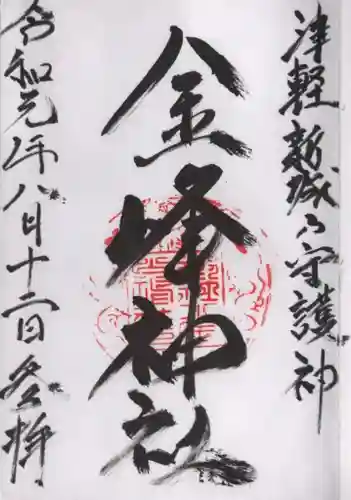 津軽新城乃守護神
金峰神社
令和元年八月十二日参拝